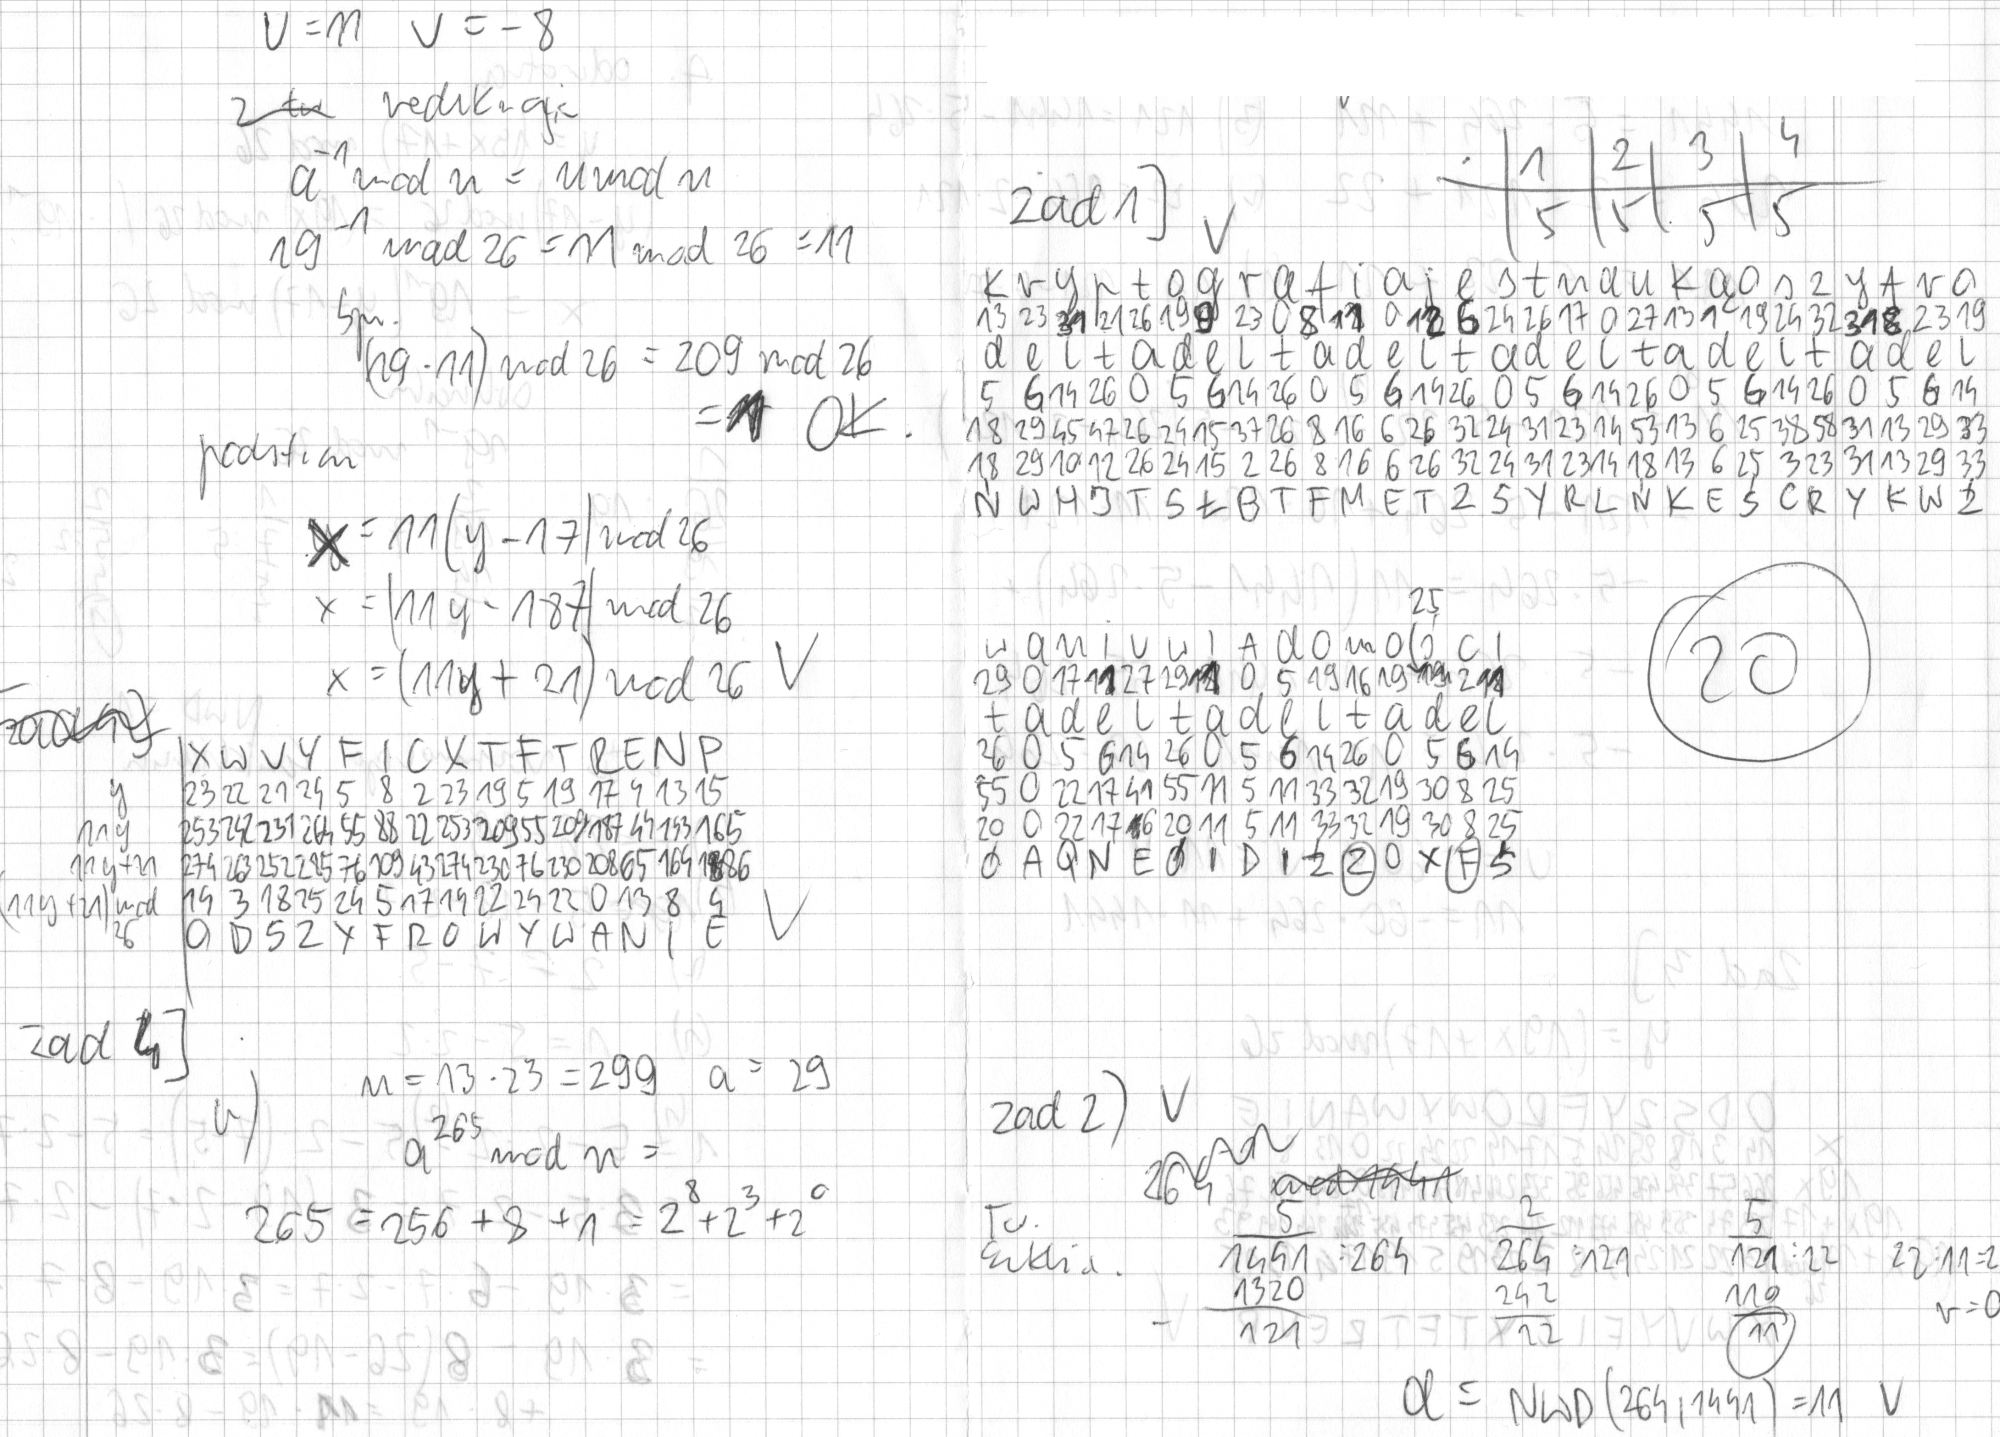 U = 11 V = -8
redukcja
a^-1 mod n = u mod n
19^-1 mod 26 = 11 mod 26 = 11
Spr.
(19 · 11) mod 26 = 209 mod 26
= 1 OK.
x = 11(y - 17) mod 26
x = (11y - 187) mod 26
x = (11y + 21) mod 26 V
X W V Y F I C X T F T R E N P
y 23 22 21 24 5 8 2 23 19 5 19 17 4 13 15
11y 253 242 231 264 55 88 22 253 209 55 209 187 44 143 165
11y+21 274 263 252 285 76 109 43 274 230 76 230 208 65 164 186
(11y+21) mod 26 14 3 18 25 24 5 17 14 22 24 22 0 13 8 4
O D S Z Y F R O W Y W A N I E V
zad 4]
n = 13 · 23 = 299 a = 29
a^265 mod n =
265 = 256 + 8 + 1 = 2^8 + 2^3 + 2^0
1 2 3 4
5 5 5 5
zad 1] V
k r y p t o g r a f i a j e s t n a u k a o s z y f r o
d e l t a d e l t a d e l t a d e l t a d e l t a d e l
5 6 14 26 0 5 6 14 26 0 5 6 14 26 0 5 6 14 26 0 5 6 14 26 0 5 6 14
18 29 45 47 26 24 15 37 26 8 16 6 26 32 24 31 23 14 53 13 6 25 38 58 31 13 29 33
18 29 10 12 26 24 15 2 26 8 16 6 26 32 24 31 23 14 18 13 6 25 3 23 31 13 29 33
Ń W H J T S Ł B T F M E T Z S Y R L Ń K E Ś C R Y K W Ż
25
w a n i u w i a d o m o ś c i
t a d e l t a d e l t a d e l
26 0 5 6 14 26 0 5 6 14 26 0 5 6 14
55 0 22 17 41 55 11 5 11 33 32 19 30 8 25
20 0 22 17 6 20 11 5 11 33 32 19 30 8 25
Ó A Q N E Ó I D I Ż Z O X F Ś
20
zad 2) V
264
5 2 5
1441 : 264 264 : 121 121 : 22 22 : 11 = 2
1320 242 110 r = 0
121 22 11
d = NWD (264, 1441) = 11 V